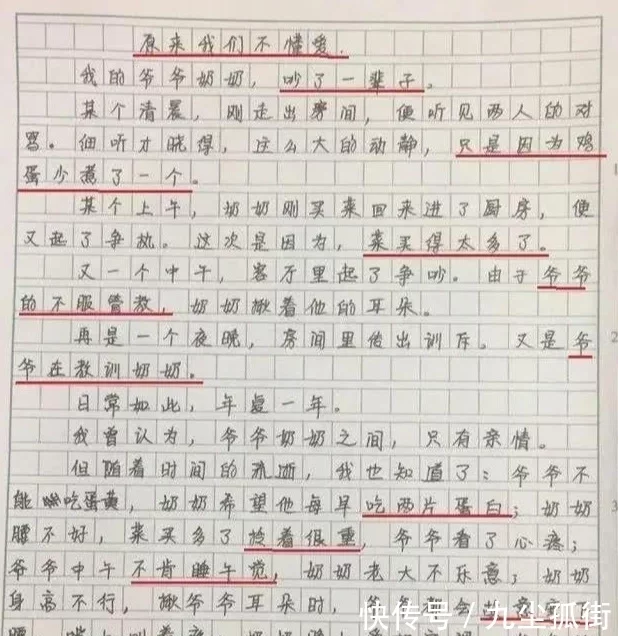 原来我们不懂爱.
我的爷爷奶奶，吵了一辈子。
某个清晨，刚走出房间，便听见两人的对
骂。细听才晓得，这么大的动静，只是因为鸡
蛋少煮了一个。
某个上午，奶奶刚买菜回来进了厨房，便
又起了争执。这次是因为，菜买得太多了。
又一个中午，客厅里起了争吵。由于爷爷
的不服管教，奶奶揪着他的耳朵。
再是一个夜晚，房间里传出训斥。又是爷
爷在教训奶奶。
日常如此，年复一年。
我曾认为，爷爷奶奶之间，只有亲情。
但随着时间的流逝，我也知道了：爷爷不
能吃蛋黄，奶奶希望他每早吃两片蛋白；奶奶
腰不好，菜买多了拎着很重，爷爷看了心疼；
爷爷中午不肯睡午觉，奶奶老大不乐意；奶奶
身高不行，揪爷爷耳朵时，爷爷
腰
1
2
3
快传号/九尘孤街